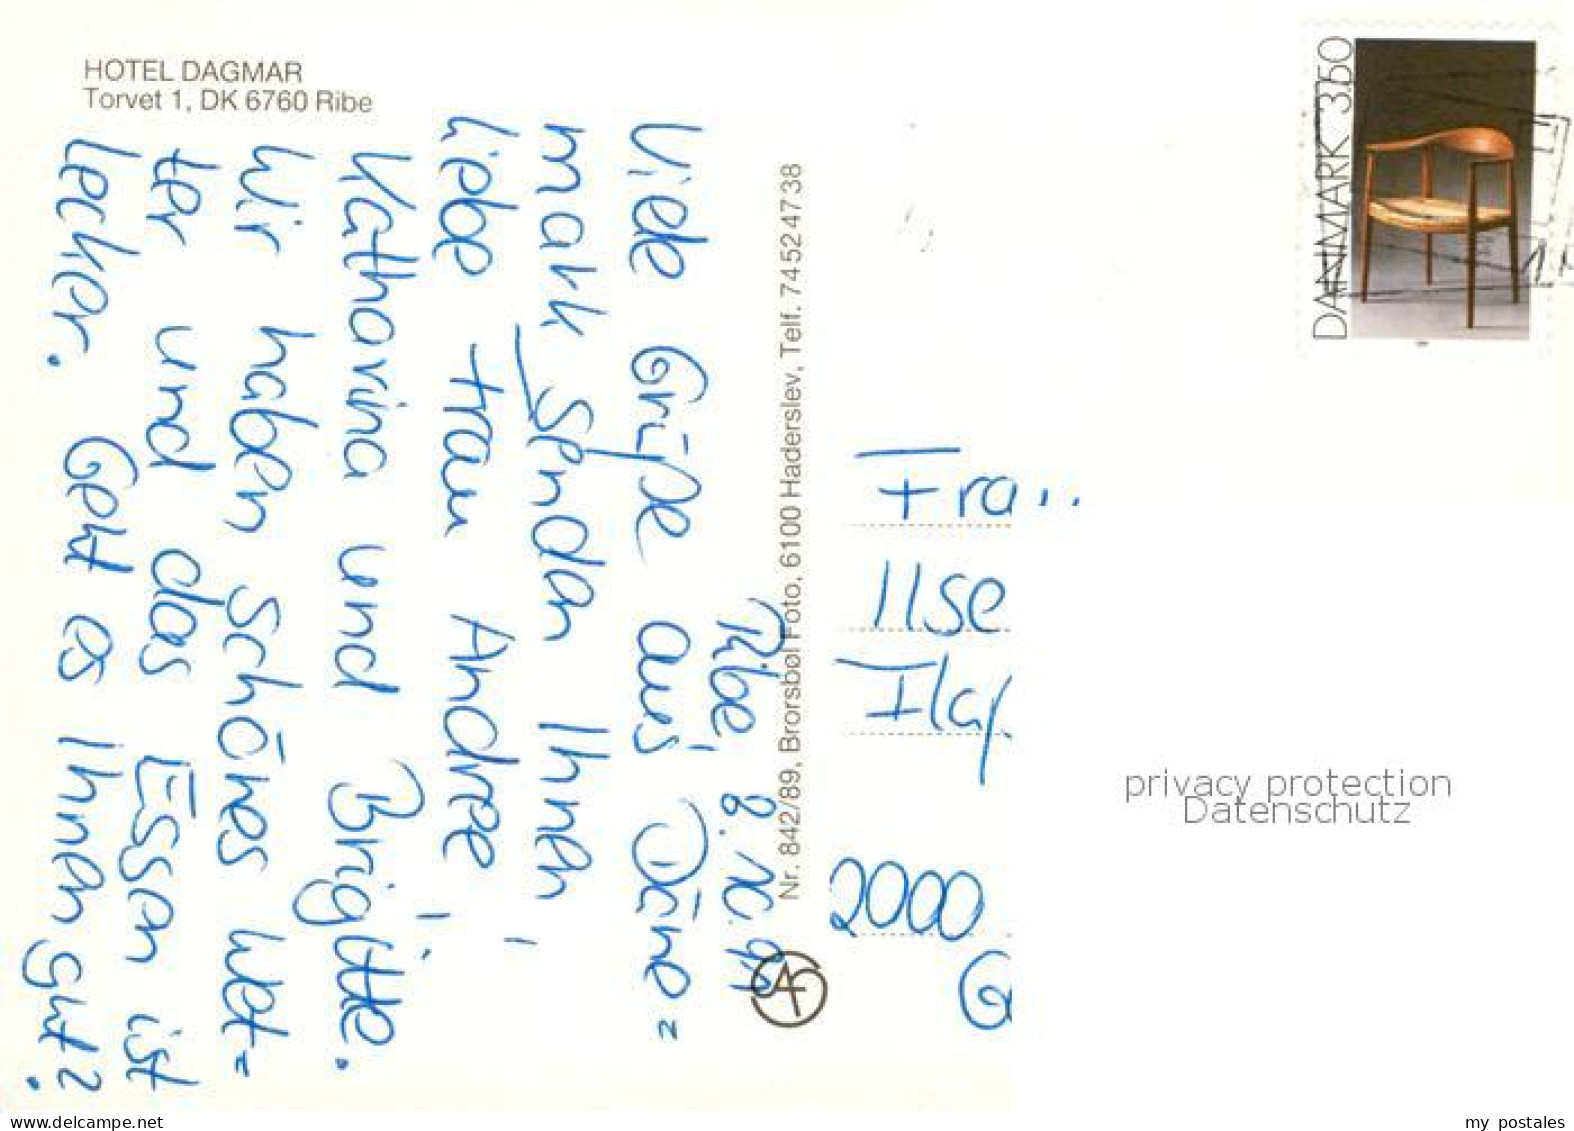 HOTEL DAGMAR
Torvet 1, DK 6760 Ribe
Ribe, 8. 10. 91
Viele Grüße aus Däne=
mark senden Ihnen,
liebe Frau Andreé,
Katharina und Brigitte.
Wir haben schönes Wet=
ter und das Essen ist
lecker. Geht es Ihnen gut?
Nr. 842/89, Brorsbøl Foto, 6100 Haderslev, Telf. 74524738
DANMARK 3.50
Frau
Ilse
2000
privacy protection
Datenschutz
www.delcampe.net
my_postales